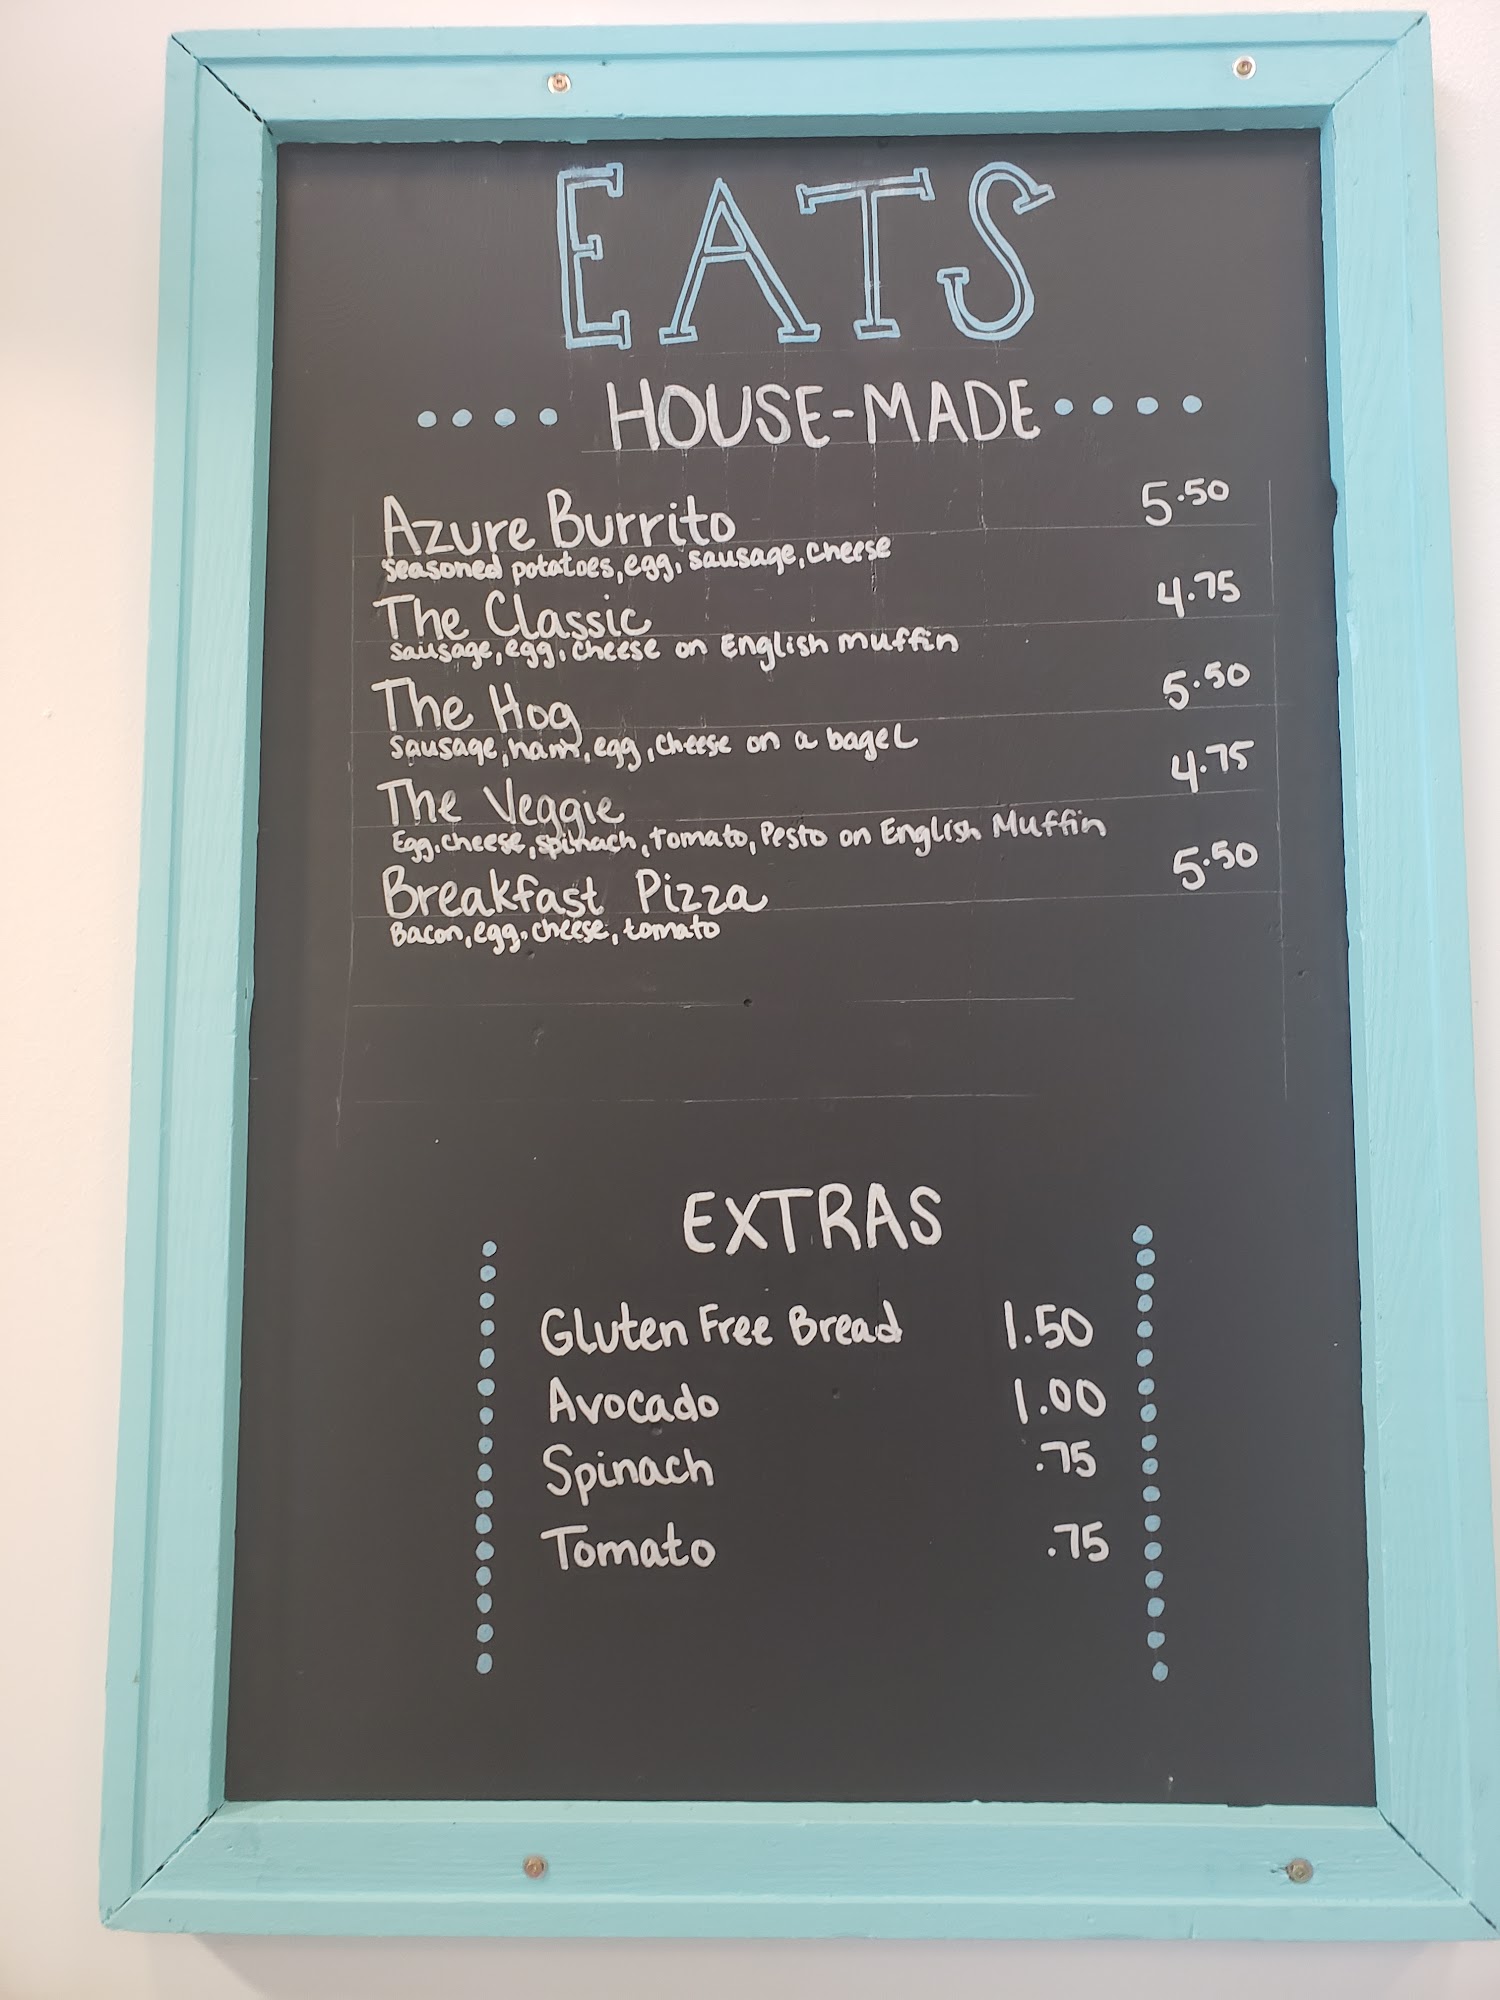 EATS
HOUSE-MADE
Azure Burrito 5.50
seasoned potatoes, egg, sausage, cheese
The Classic 4.75
sausage, egg, cheese on English muffin
The Hog 5.50
sausage, ham, egg, cheese on a bagel
The Veggie 4.75
Egg, cheese, spinach, tomato, Pesto on English Muffin
Breakfast Pizza 5.50
Bacon, egg, cheese, tomato
EXTRAS
Gluten Free Bread 1.50
Avocado 1.00
Spinach .75
Tomato .75